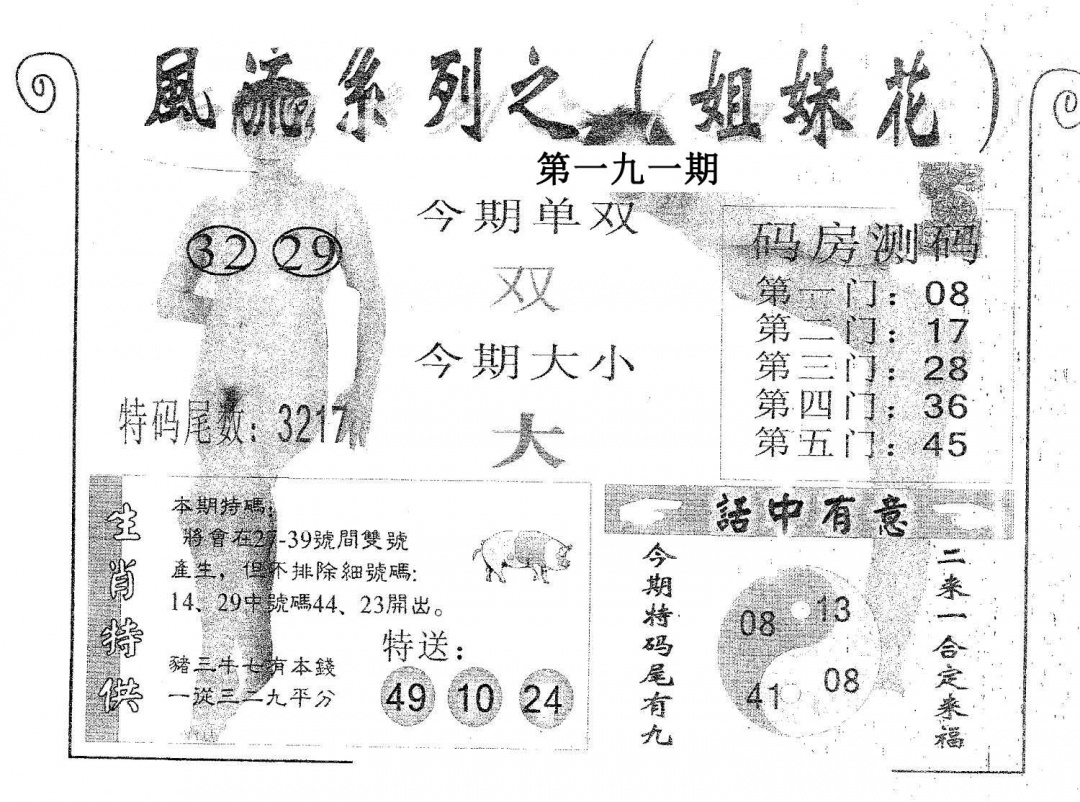 風流系列之（姐妹花）
第一九一期
今期单双
双
今期大小
大
32 29
特码尾数：3217
码房测码
第一门：08
第二门：17
第三门：28
第四门：36
第五门：45
生肖特供
本期特碼：
將會在27-39號間雙號
產生，但不排除細號碼：
14、29中號碼44、23開出。
豬三牛七有本錢
一從三二九平分
特送：
49 10 24
話中有意
今期特码尾有九
08 13
41 08
二来一合定来福